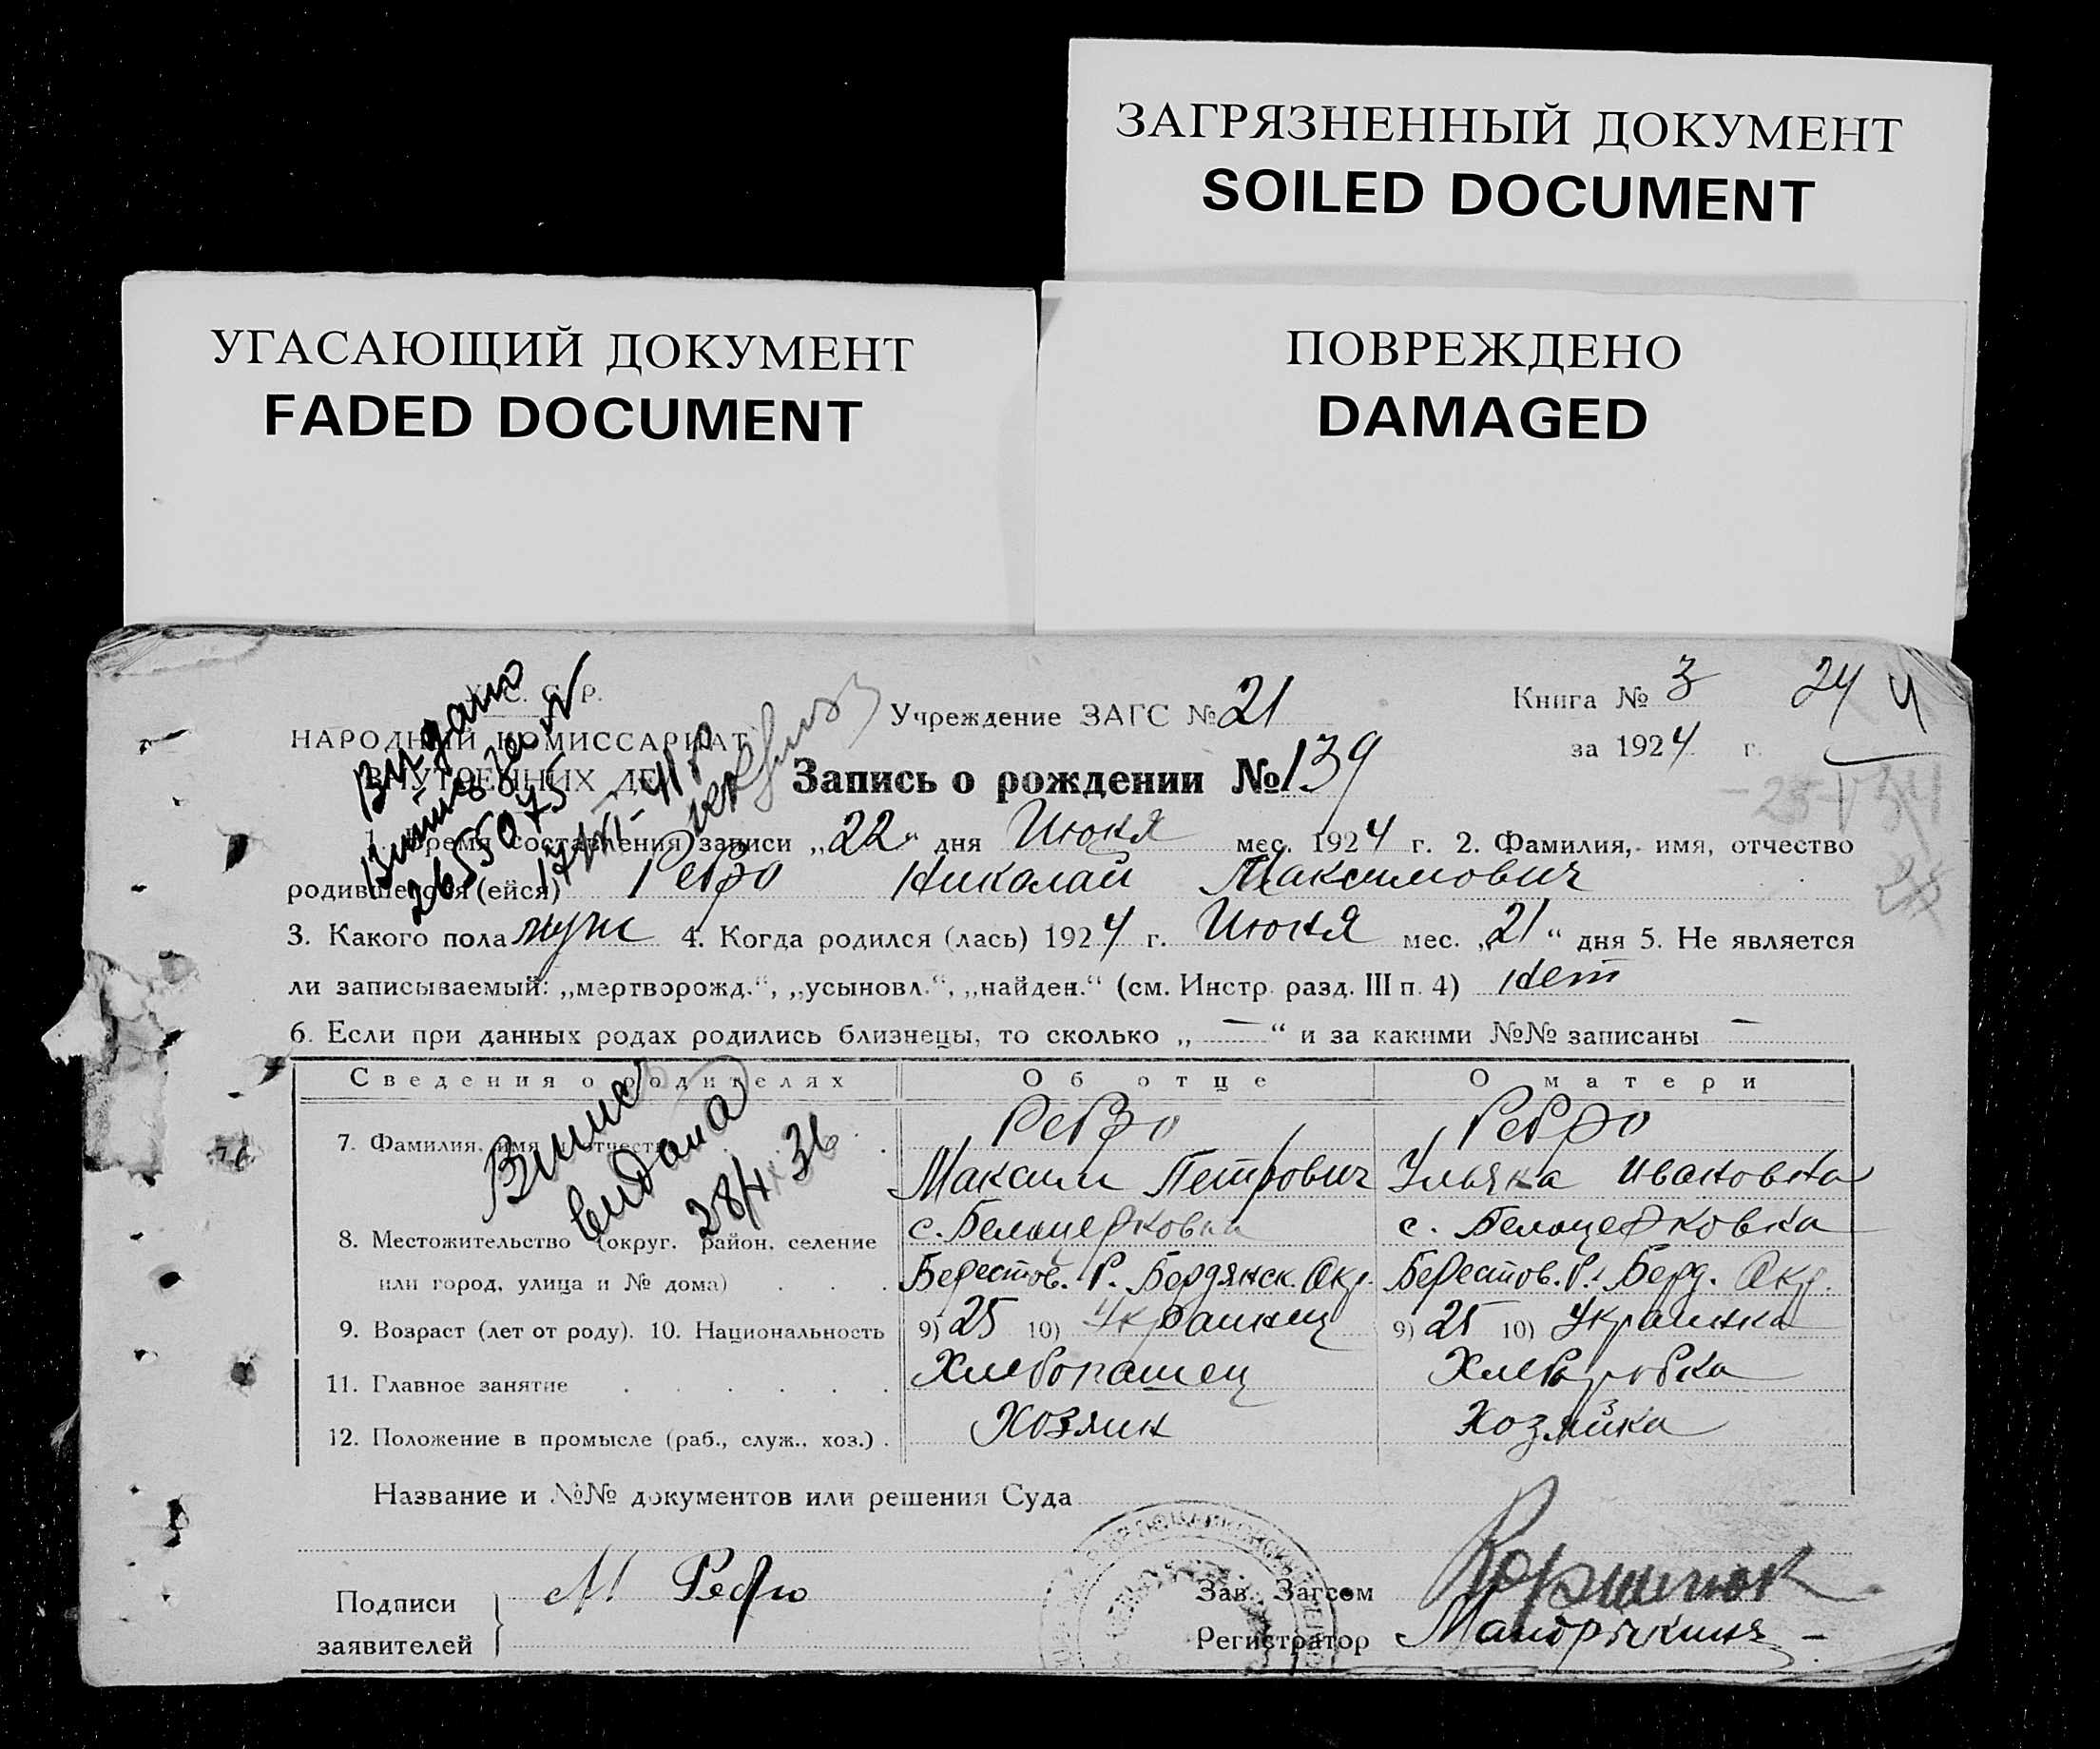 ЗАГРЯЗНЕННЫЙ ДОКУМЕНТ
SOILED DOCUMENT
УГАСАЮЩИЙ ДОКУМЕНТ
FADED DOCUMENT
ПОВРЕЖДЕНО
DAMAGED
У. С. С. Р.
НАРОДНЫЙ КОМИССАРИАТ
ВНУТРЕННИХ ДЕЛ
Видано
265075
Учреждение ЗАГС № 21
Книга № 3
24
за 1924 г.
Запись о рождении № 139
1. Время составления записи „22“ дня Июня мес. 1924 г. 2. Фамилия, имя, отчество
родившегося (ейся) Ребро Николай Максимович
3. Какого пола муж 4. Когда родился (лась) 1924 г. Июня мес. „21“ дня 5. Не является
ли записываемый: „мертворожд.“, „усыновл.“, „найден.“ (см. Инстр. разд. III п. 4) Нет
6. Если при данных родах родились близнецы, то сколько „—“ и за какими №№ записаны —
Сведения о родителях Об отце О матери
7. Фамилия, имя и отчество Ребро Ребро
Максим Петрович Ульяна Ивановна
Випис
видана
28/4 36
8. Местожительство (округ. район. селение с. Белоцерковка с. Белоцерковка
или город, улица и № дома) Берестов. Р. Бердянск. Окр. Берестов. Р. Берд. Окр.
9. Возраст (лет от роду). 10. Национальность 9) 25 10) Украинец 9) 25 10) Украинка
11. Главное занятие Хлебопашец Хлеборобка
12. Положение в промысле (раб., служ., хоз.) Хозяин Хозяйка
Название и №№ документов или решения Суда
Подписи
заявителей
М Ребро
Зав. Загсом
Регистратор